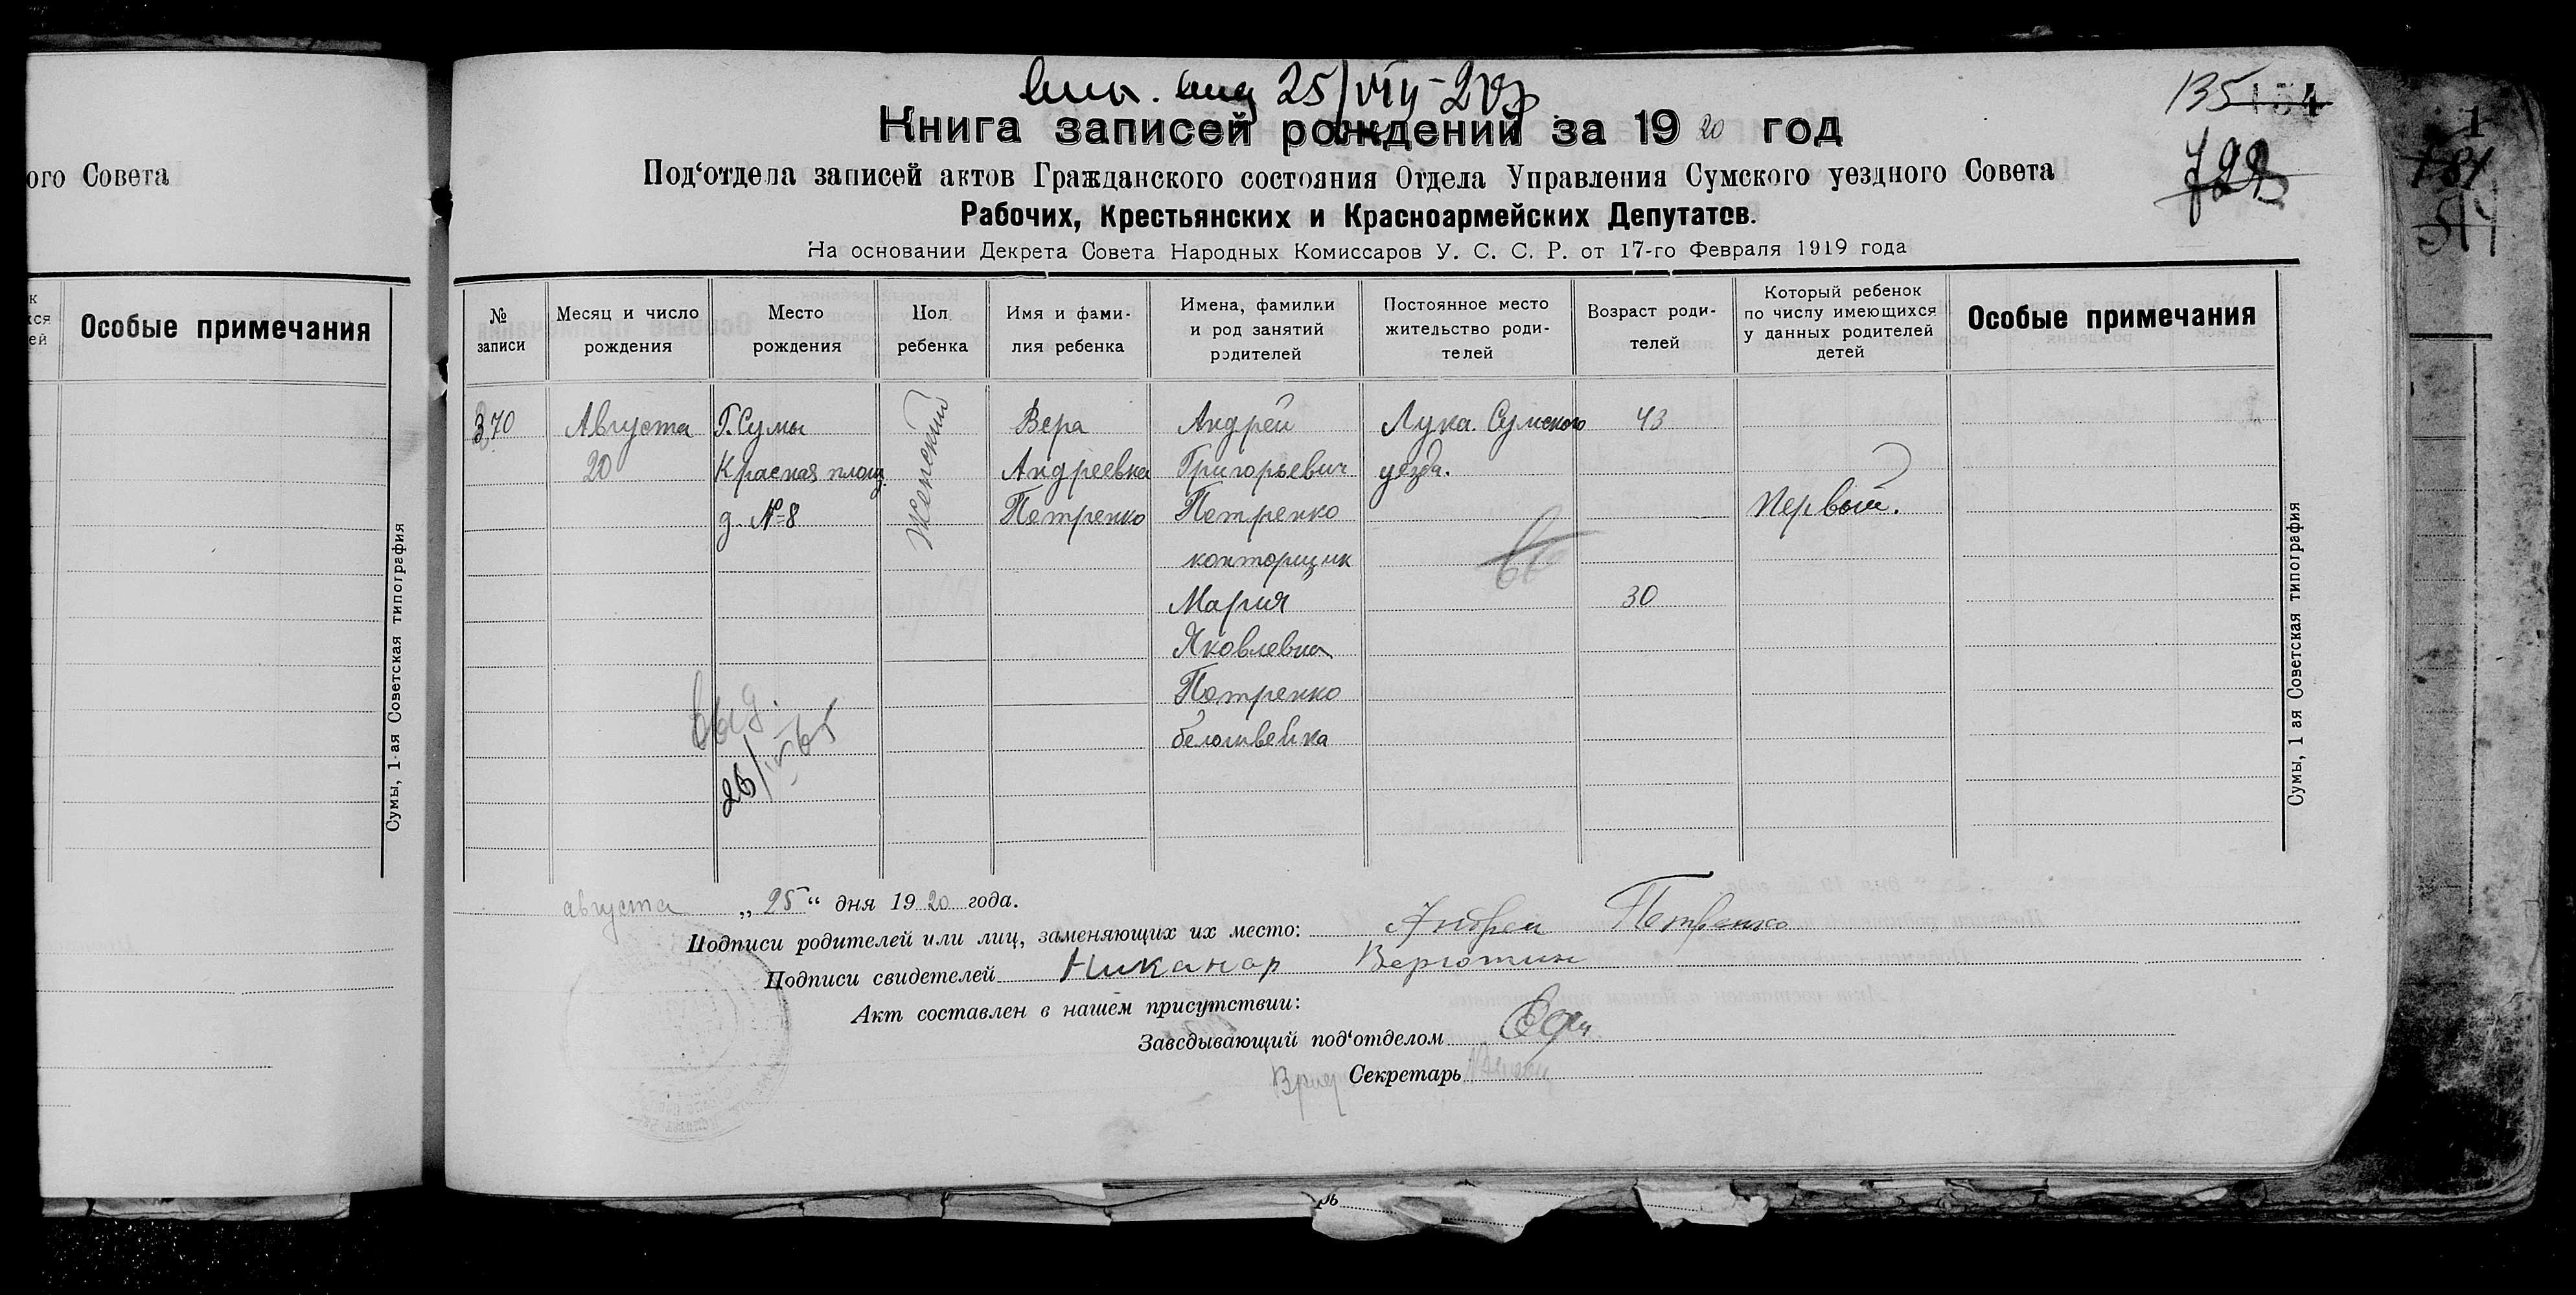 ого Совета
Особые примечания
Сумы, 1-ая Советская типография
25/VIII-20г
135
Книга записей рождений за 1920 год
Под‘отдела записей актов Гражданского состояния Отдела Управления Сумского уездного Совета
Рабочих, Крестьянских и Красноармейских Депутатов.
На основании Декрета Совета Народных Комиссаров У. С. С. Р. от 17-го Февраля 1919 года
№ записи
Месяц и число рождения
Место рождения
Пол ребенка
Имя и фами-
лия ребенка
Имена, фамилии
и род занятий
родителей
Постоянное место
жительство роди-
телей
Возраст роди-
телей
Который ребенок
по числу имеющихся
у данных родителей
детей
Особые примечания
370
Августа
20
Г. Сумы
Красная площ.
д. №8
Женский
Вера
Андреевна
Петренко
Андрей
Григорьевич
Петренко
конторщик
Мария
Яковлевна
Петренко
белошвейка
Лука Сумского
уезда.
43
30
Первый.
выд.
Сумы, 1 ая Советская типография
августа „25“ дня 1920 года.
Подписи родителей или лиц, заменяющих их место: Андрей Петренко
Подписи свидетелей Никанор Верютин
Акт составлен в нашем присутствии:
Заведывающий под‘отделом
Врид Секретарь